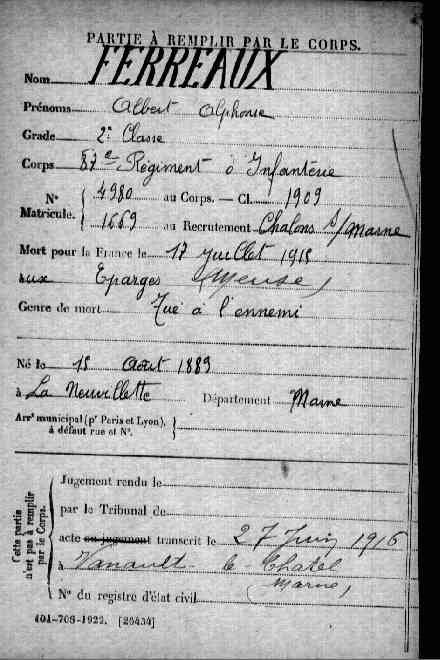 PARTIE À REMPLIR PAR LE CORPS.
Nom FERREAUX
Prénoms Albert Alphonse
Grade 2e Classe
Corps 87e Régiment d'Infanterie
N° Matricule. { 4980 au Corps. — Cl. 1909
1669 au Recrutement Chalons s/Marne
Mort pour la France le 17 juillet 1915
aux Eparges (Meuse)
Genre de mort Tué à l'ennemi
Né le 15 Août 1889
à La Neuvillette Département Marne
Arrt municipal (pr Paris et Lyon),
à défaut rue et N°.
Cette partie n'est pas à remplir par le Corps.
Jugement rendu le
par le Tribunal de
acte ou jugement transcrit le 27 Juin 1916
à Vanault-le-Chatel
(Marne)
N° du registre d'état civil
401-708-1922. [26434]